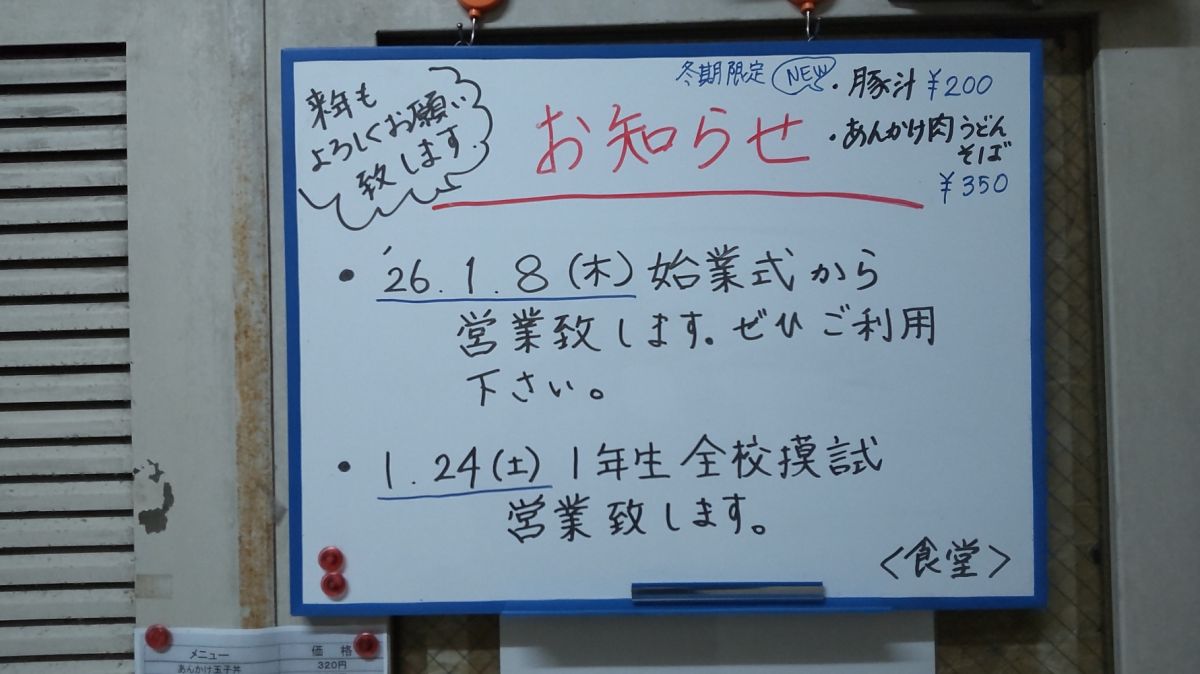 来年も
よろしくお願い
致します。
お知らせ
冬期限定 NEW ・豚汁 ¥200
・あんかけ肉うどん
そば
¥350
• '26.1.8(木)始業式から
営業致します。ぜひご利用
下さい。
• 1.24(土) 1年生全校摸試
営業致します。
<食堂>
メニュー 価格
あんかけ玉子丼 320円